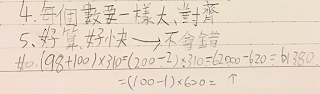 4.每個數要一樣大、對齊
5.好算,好小快→不會錯
如.(98+100)×310=(200-2)×310=62000-620=61380
=(100-1)×620= ↑